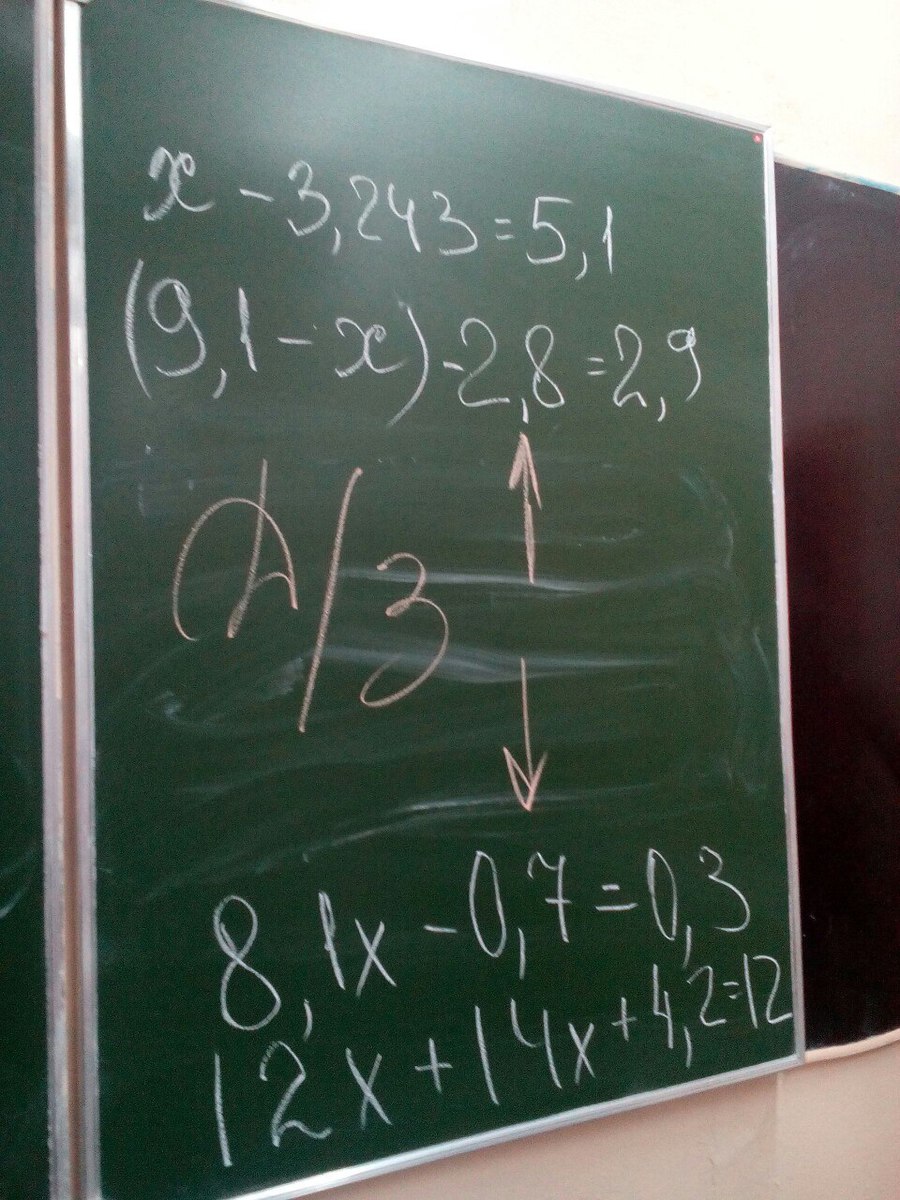 x - 3,243 = 5,1
(9,1 - x) - 2,8 = 2,9
д/з
8,1x - 0,7 = 0,3
12x + 14x + 4,2 = 12